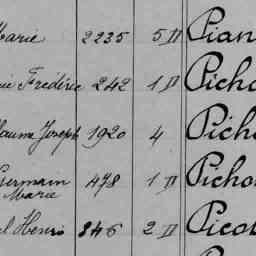 Marie 2235 5 D Pian
ie Frédéric 242 1 D Picho
laume Joseph 1920 4 Picho
Germain 478 1 D Pichon
Marie
el Henri 846 2 D Picot